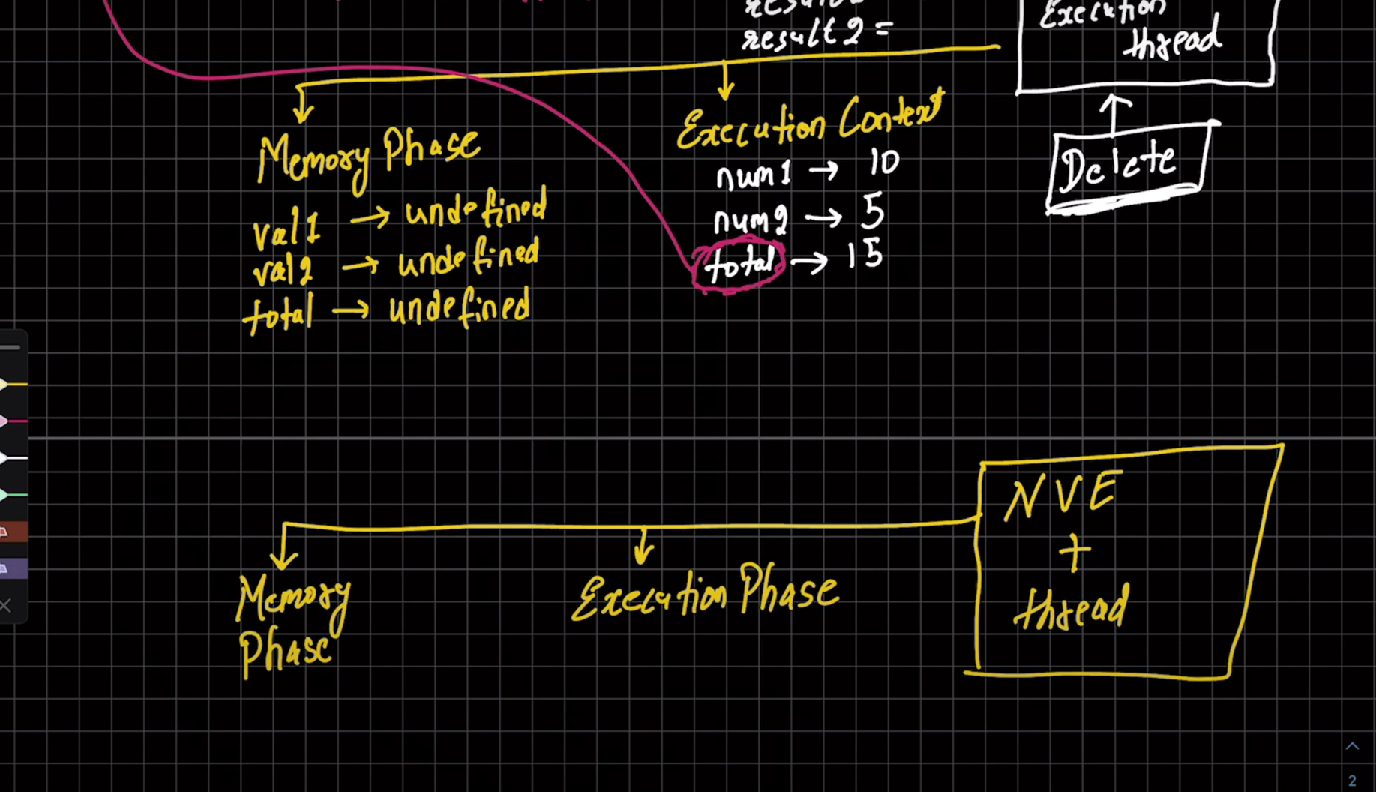 result 2 =
Execution
thread
Memory Phase
val1 → undefined
val2 → undefined
total → undefined
Execution Context
num1 → 10
num2 → 5
total → 15
Delete
Memory
Phase
Execution Phase
NVE
+
thread
2